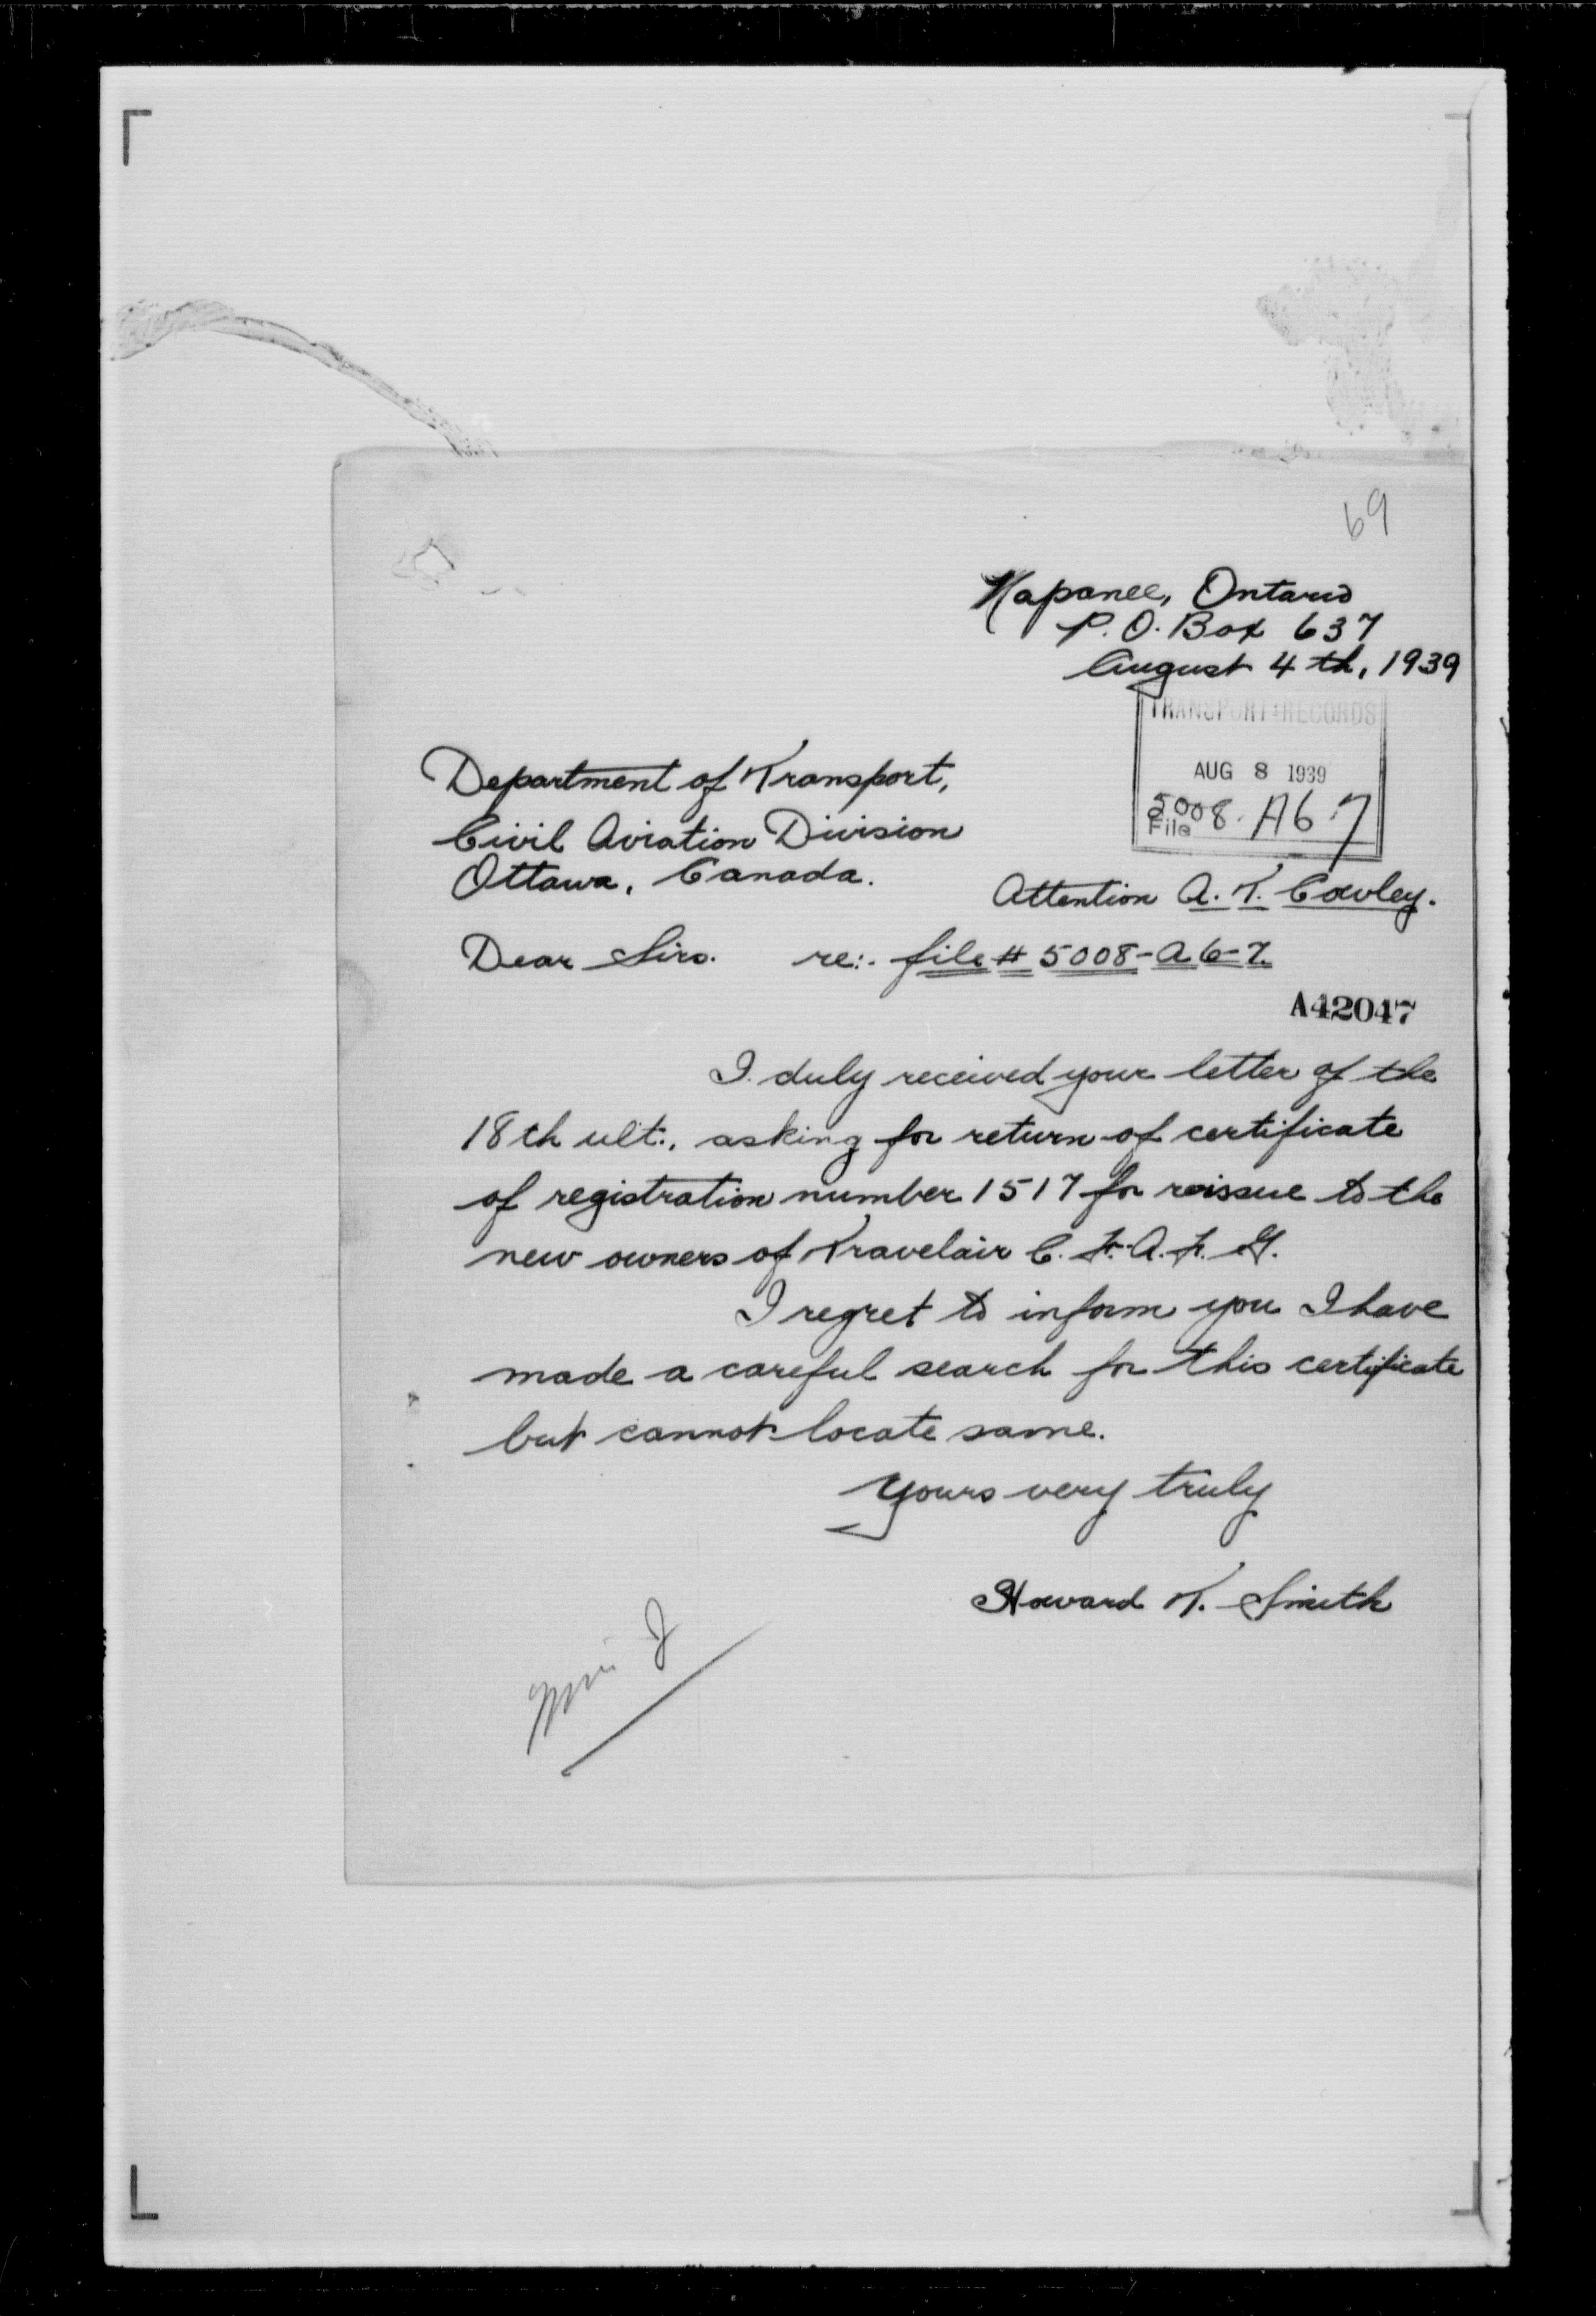 69
Napanee, Ontario
P.O. Box 637
August 4th, 1939
TRANSPORT RECORDS
AUG 8 1939
5008. A6.7
File
Department of Transport,
Civil Aviation Division
Ottawa, Canada.
Attention A. T. Cowley.
Dear Sirs. re:. file # 5008-A6-7.
A42047
I duly received your letter of the
18th ult., asking for return of certificate
of registration number 1517 for reissue to the
new owners of Travelair C. F. A. F. G.
I regret to inform you I have
made a careful search for this certificate
but cannot locate same.
Yours very truly
Howard T. Smith